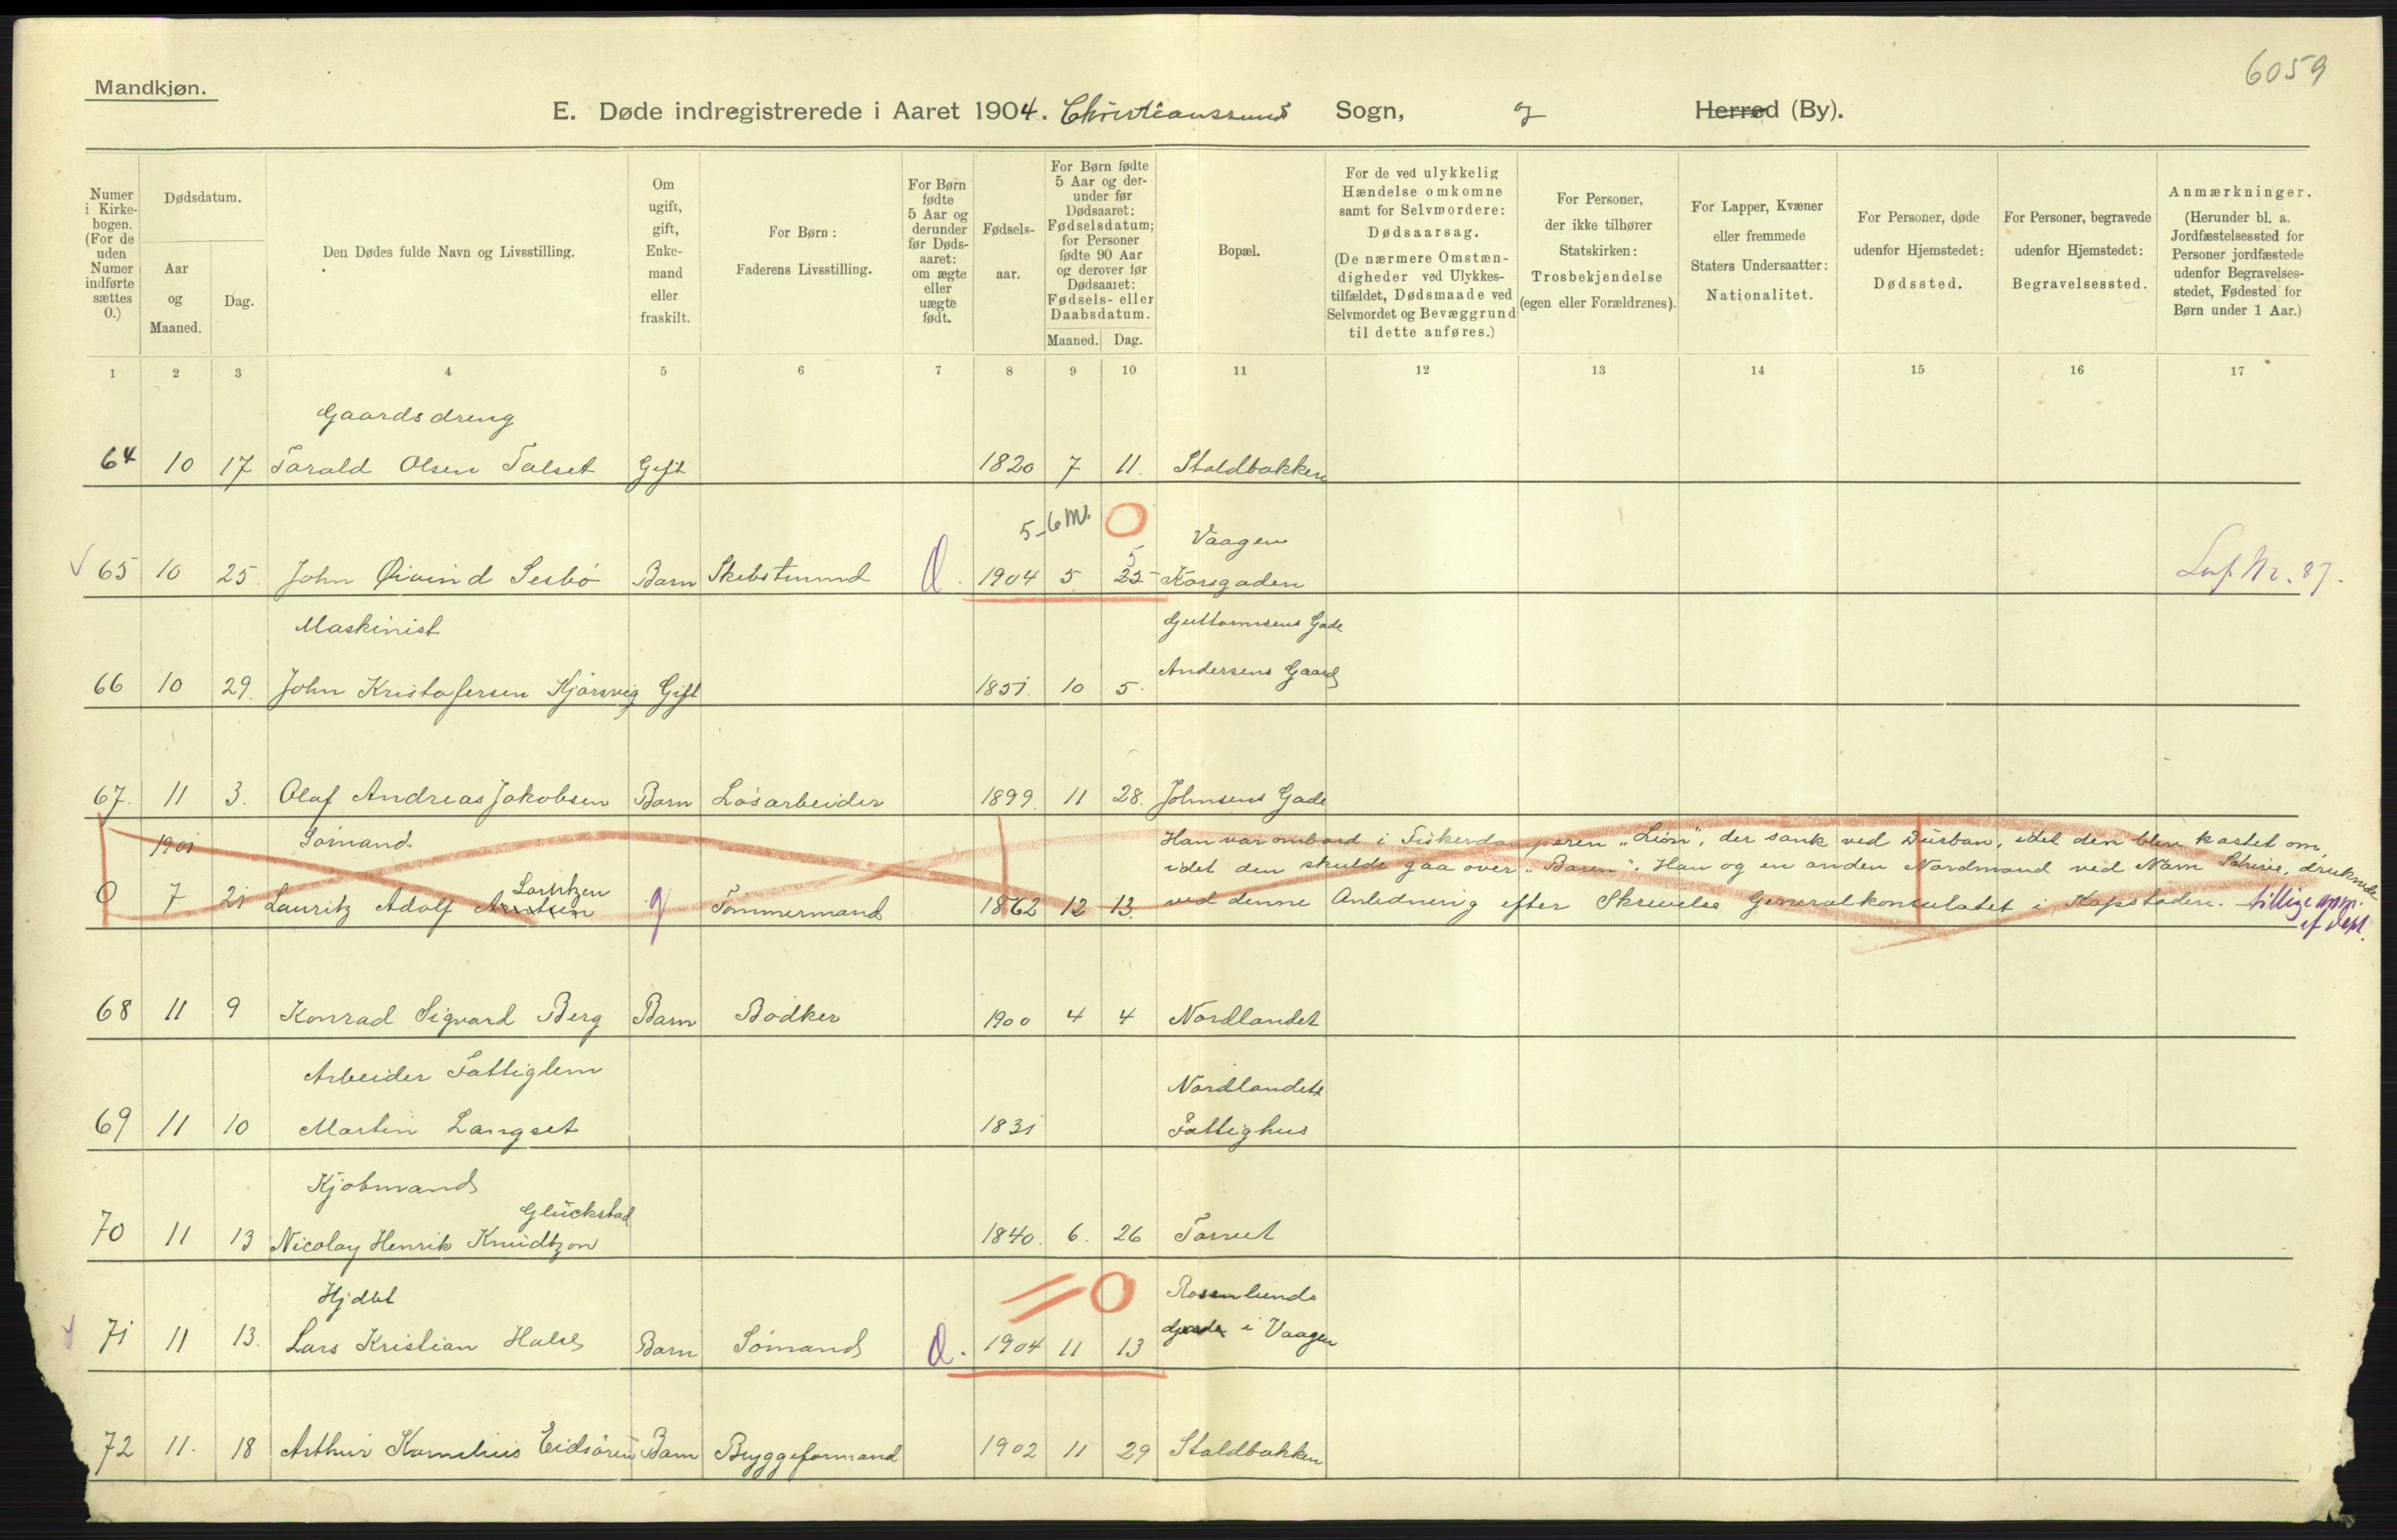 6059
Mandkjøn.
E. Døde indregistrerede i Aaret 1904. Christianssund Sogn, Herred (By).
Numer i Kirkebogen. (For de uden Numer indførte sættes 0.)
Dødsdatum.
Aar og Maaned.
Dag.
Den Dødes fulde Navn og Livsstilling.
Om ugift, gift, Enkemand eller fraskilt.
For Børn: Faderens Livsstilling.
For Børn fødte 5 Aar og derunder før Dødsaaret: om ægte eller uægte født.
Fødselsaar.
For Børn fødte 5 Aar og derunder før Dødsaaret: Fødselsdatum; for Personer fødte 90 Aar og derover før Dødsaaret: Fødsels- eller Daabsdatum.
Maaned. Dag.
Bopæl.
For de ved ulykkelig Hændelse omkomne samt for Selvmordere: Dødsaarsag. (De nærmere Omstændigheder ved Ulykkestilfældet, Dødsmaade ved Selvmordet og Bevæggrund til dette anføres.)
For Personer, der ikke tilhører Statskirken: Trosbekjendelse (egen eller Forældrenes).
For Lapper, Kvæner eller fremmede Staters Undersaatter: Nationalitet.
For Personer, døde udenfor Hjemstedet: Dødssted.
For Personer, begravede udenfor Hjemstedet: Begravelsessted.
Anmærkninger. (Herunder bl. a. Jordfæstelsessted for Personer jordfæstede udenfor Begravelsesstedet, Fødested for Børn under 1 Aar.)
1 2 3 4 5 6 7 8 9 10 11 12 13 14 15 16 17
Gaardsdreng
64 10 17 Tarald Olsen Talset Gift 1820 7 11. Staldbakken
5-6 M. 0 Vaagen
5
65 10 25. John Øivind Sesbö Barn Skibstømmd 1904 5 25 Korsgaden Nr. 87.
Maskinist Guttormsens Gade
Andersens Gaard
66 10 29. John Kristofersen Kjörsvig Gift 1851. 10 5.
67. 11 3. Olaf Andreas Jakobsen Barn Løsarbeider 1899. 11 28. Johnsens Gade
1901 Sömand. Han var ombord i Fiskerdamperen "Lion", der sank ved Durban, idet den blev kastet om,
Laritzen idet den skulde gaa over "Baren". Han og en anden Nordmand ved Navn druknede
0 7 21 Lauritz Adolf g Tømmermand 1862 12 13. ved denne Anledning efter Skrivelse Generalkonsulatet i Kapstaden. tillige anm.
af Dept.
68 11 9 Konrad Sigvard Berg Barn Bødker 1900 4 4 Nordlandet
Arbeider Fattiglem Nordlandets
69 11 10 Martin Langset 1831 Fattighus
Kjøbmand
Glückstad
70 11 13 Nicolay Henrik Knudtzon 1840. 6. 26 Torvet
Hjdbt = 0 Rosenlunds
71 11 13. Lars Kristian Halse Barn Sömand 1904 11 13 i Vaagen
72 11. 18 Arthur Kornelius Eidsören Barn Bryggeformand 1902 11 29 Staldbakken